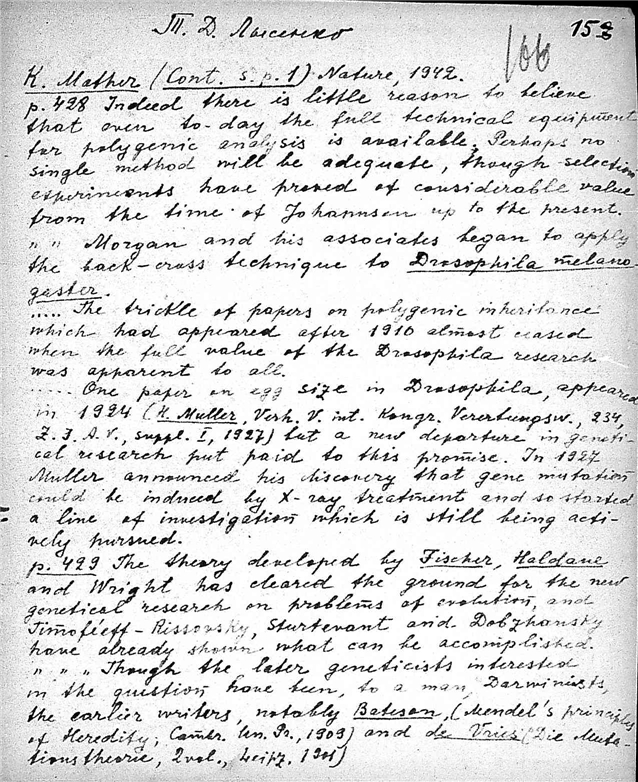 Т. Д. Лысенко
153
166
K. Mather (Cont. s. p. 1) Nature, 1942.
p. 428 Indeed there is little reason to believe
that even to-day the full technical equipment
for polygenic analysis is available. Perhaps no
single method will be adequate, though selection
experiments have proved of considerable value
from the time of Johannsen up to the present.
" " Morgan and his associates began to apply
the back-cross technique to Drosophila melano-
gaster.
..... The trickle of papers on polygenic inheritance
which had appeared after 1910 almost ceased
when the full value of the Drosophila research
was apparent to all.
..... One paper on egg size in Drosophila, appeared
in 1924 (H. Muller, Verh. V. int. Kongr. Vererbungsw., 234,
Z. I. A. V., suppl. I, 1927) but a new departure in geneti-
cal research put paid to this promise. In 1927
Muller announced his discovery that gene mutation
could be induced by X-ray treatment and so started
a line of investigation which is still being acti-
vely pursued.
p. 429 The theory developed by Fischer, Haldane
and Wright has cleared the ground for the new
genetical research on problems of evolution, and
Timoféeff-Rissovsky, Sturtevant and Dobzhansky
have already shown what can be accomplished.
" " " Though the later geneticists interested
in the question have been, to a man, Darwinists,
the earlier writers, notably Bateson, (Mendel's principles
of Heredity; Cambr. Un. Pr., 1909) and de Vries (Die Muta-
tionstheorie, 2 vol., Leipz. 1901)